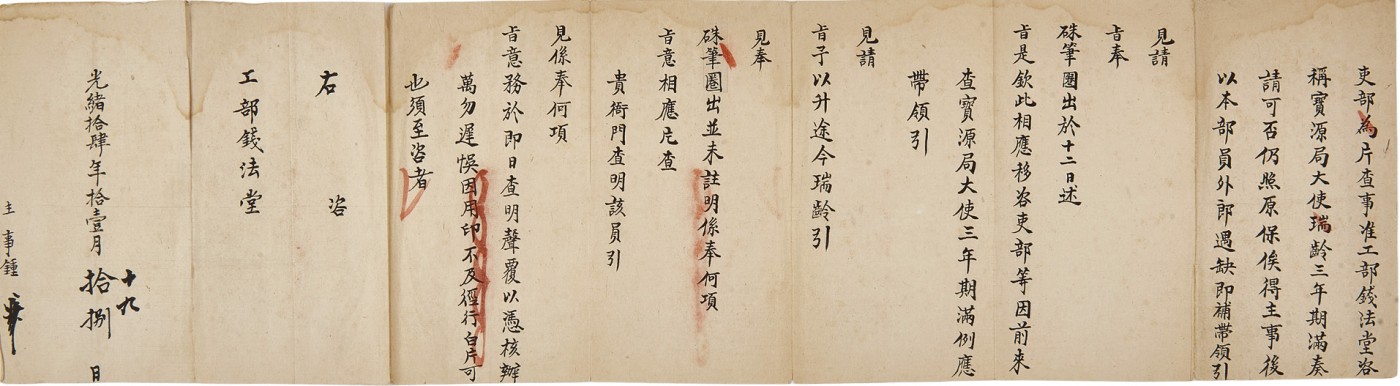 吏部為片查事准工部錢法堂咨
稱寶源局大使瑞齡三年期滿奏
請可否仍照原保俟得主事後
以本部員外郎遇缺即補帶領引
見請
旨奉
硃筆圈出於十二日述
旨是欽此相應移咨吏部等因前來
查寶源局大使三年期滿例應
帶領引
見請
旨予以升途今瑞齡引
見奉
硃筆圈出並未註明係奉何項
旨意相應片查
貴衙門查明該員引
見係奉何項
旨意務於即日查明聲覆以憑核辦
萬勿遲悞因用印不及徑行白片可
也須至咨者
右咨
工部錢法堂
光緒拾肆年拾壹月拾捌日
十九
主事鍾